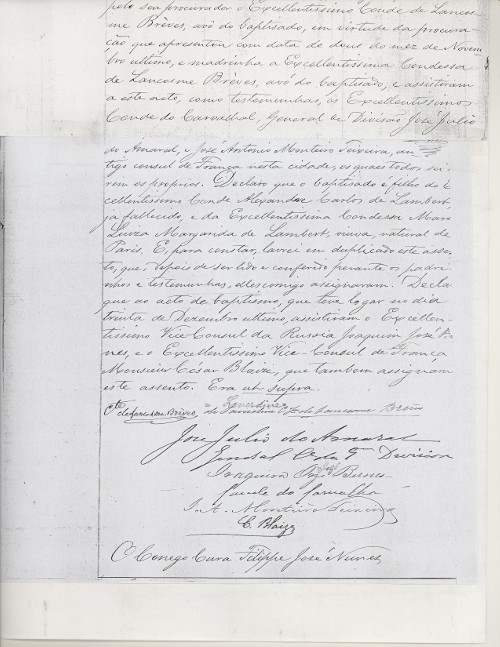 pelo seu procurador o Excellentissimo Conde de Lancos-
me Brèves, avô do baptisado, em virtude da procura-
ção que apresentou com data de dous do mez de Novem
bro ultimo, e madrinha a Excellentissima Condessa
de Lancosme Brèves, avó do baptisado, e assistiram
a este acto, como testemunhas, os Excellentissimos
Conde do Carvalhal, General de Divisão José Julio
do Amaral, e José Antonio Monteiro Teixeira, an
tigo consul de França nesta cidade, os quaes todos, sei
rem os proprios. Declaro que o baptisado é filho do E
cellentissimo Conde Alexandre Carlos de Lambert,
já fallecido, e da Excellentissima Condessa Maria
Luiza Margarida de Lambert, viuva, natural de
Paris. E, para constar, lavrei em duplicado este assen-
to, que, depois de ser lido e conferido perante os padri
nhos e testemunhas, elles comigo assignaram. Decla
que ao acto de baptismo, que teve logar no dia
trinta de Dezembro ultimo, assistiram o Excellen-
tissimo Vice Consul da Russia Joaquim José
nes, e o Excellentissimo Vice-Consul de França
Monsieur César Blaize, que tambem assignam
este assento. Era ut supra.
Cte de Lancosme Brèves Ctesse de Lancosme Brèves
José Julio do Amaral
General Cte da 5ª Divisão
Joaquim José
Conde do Carvalhal
J. A. Monteiro Teixeira
C. Blaize
O Conego Cura Filippe José Nunes